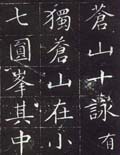 蒼山十詠有
獨蒼山在小
七圓峯其中